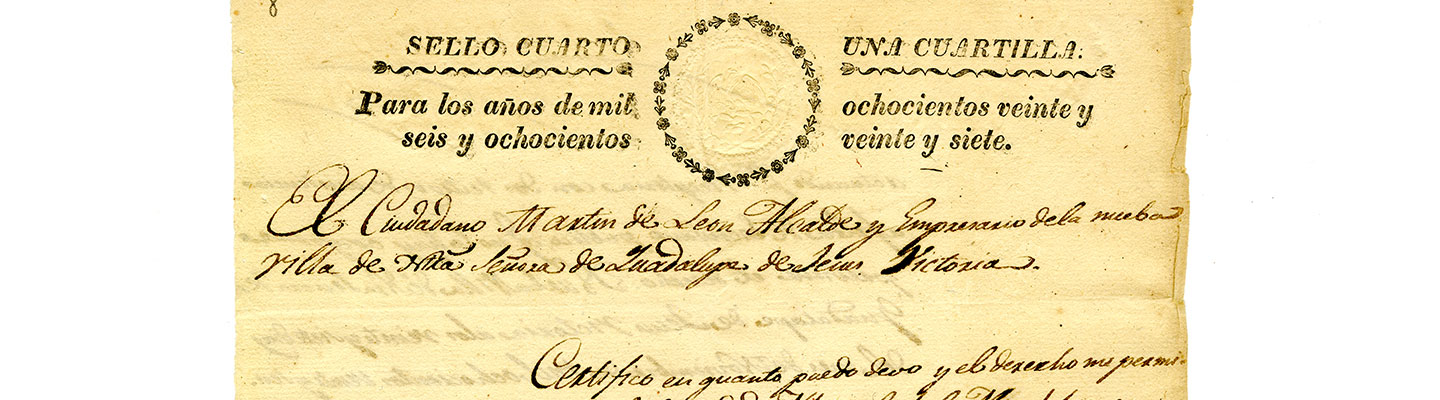 SELLO CUARTO
UNA CUARTILLA:
Para los años de mil
ochocientos veinte y
seis y ochocientos
veinte y siete.
El Ciudadano Martin de Leon Alcalde y Empresario de la nueba
Villa de Ntra Señora de Guadalupe de Jesus Victoria.
Certifico en quanto puedo devo y el derecho me permi-